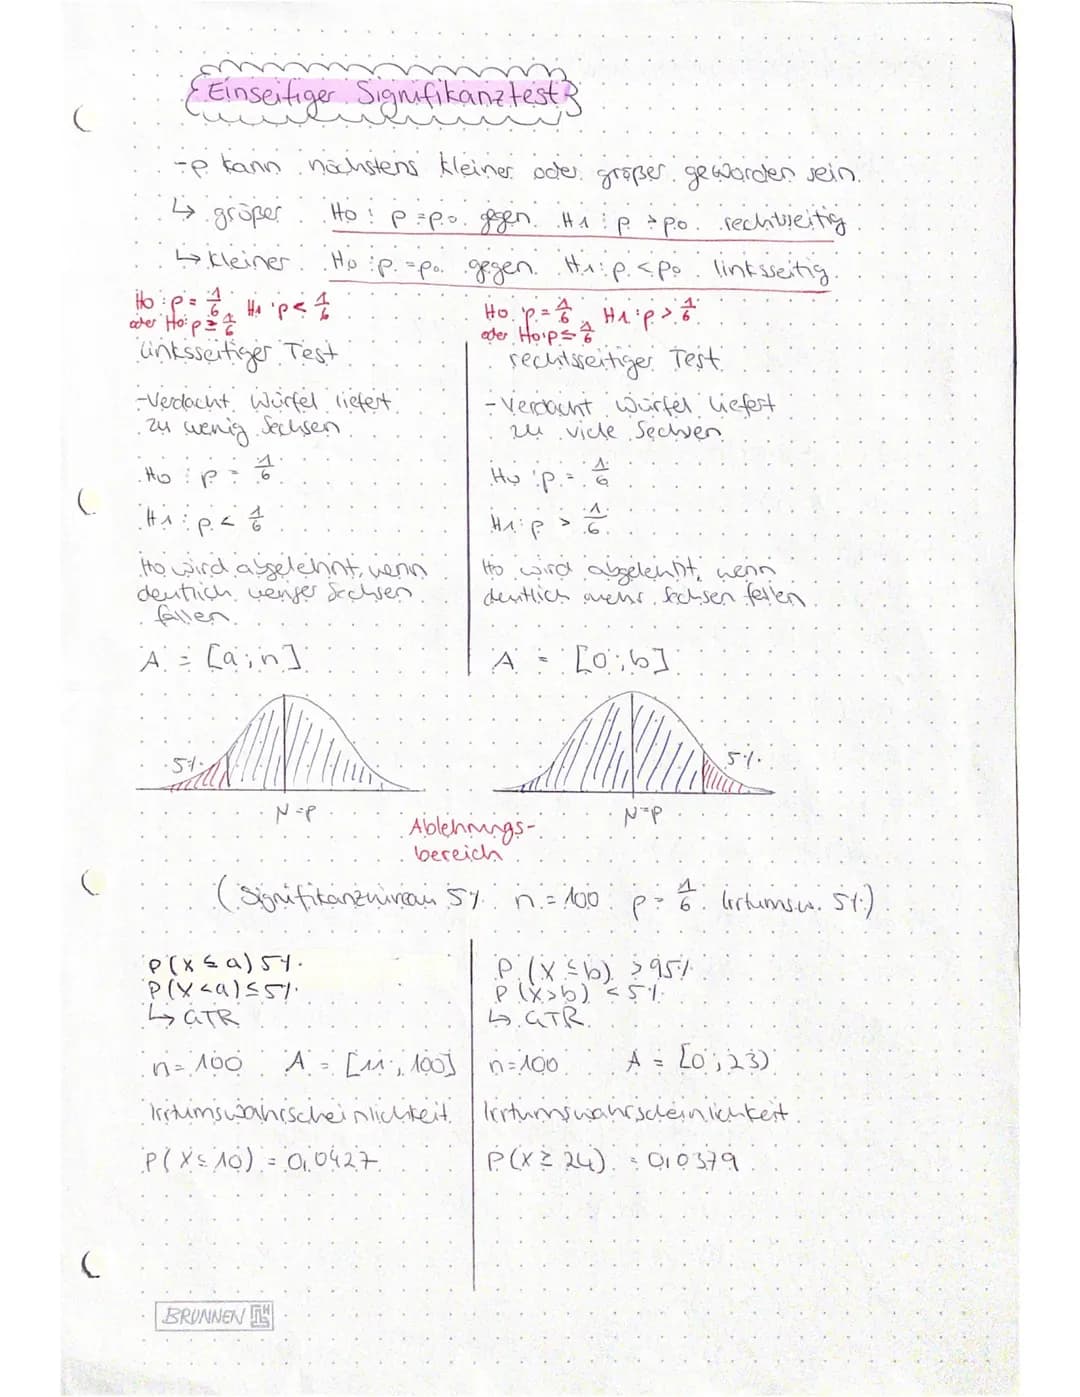 Einseitiger Signifikanztest
- p kann höchstens kleiner oder größer geworden sein.
↳ größer H0 : p = p0 gegen H1 : p > p0 rechtsseitig
↳ kleiner H0 : p = p0 gegen H1 : p < p0 linksseitig
H0 : p = 1/6 H1 : p < 1/6
oder H0: p ≥ 1/6
linksseitiger Test
- Verdacht Würfel liefert
zu wenig Sechsen
H0 : p = 1/6
H1 : p < 1/6
H0 wird abgelehnt, wenn
deutlich weniger Sechsen
fallen
A = [a ; n]
5%
N=P
H0 : p = 1/6 H1 : p > 1/6
oder H0: p ≤ 1/6
rechtsseitiger Test
- Verdacht Würfel liefert
zu viele Sechsen
H0 : p = 1/6
H1 : p > 1/6
H0 wird abgelehnt, wenn
deutlich mehr Sechsen fallen
A = [0 ; b]
5%
N=P
Ablehnungs-
bereich
(Signifikanzniveau 5% n = 100 p = 1/6 Irrtumsw. 5%)
P(X ≤ a) 5%
P(X < a) ≤ 5%
↳ GTR
n = 100 A = [11 ; 100]
Irrtumswahrscheinlichkeit
P(X ≤ 10) = 0,0427
P(X ≤ b) > 95%
P(X > b) < 5%
↳ GTR
n = 100 A = [0 ; 23)
Irrtumswahrscheinlichkeit
P(X ≥ 24) = 0,0379
BRUNNEN